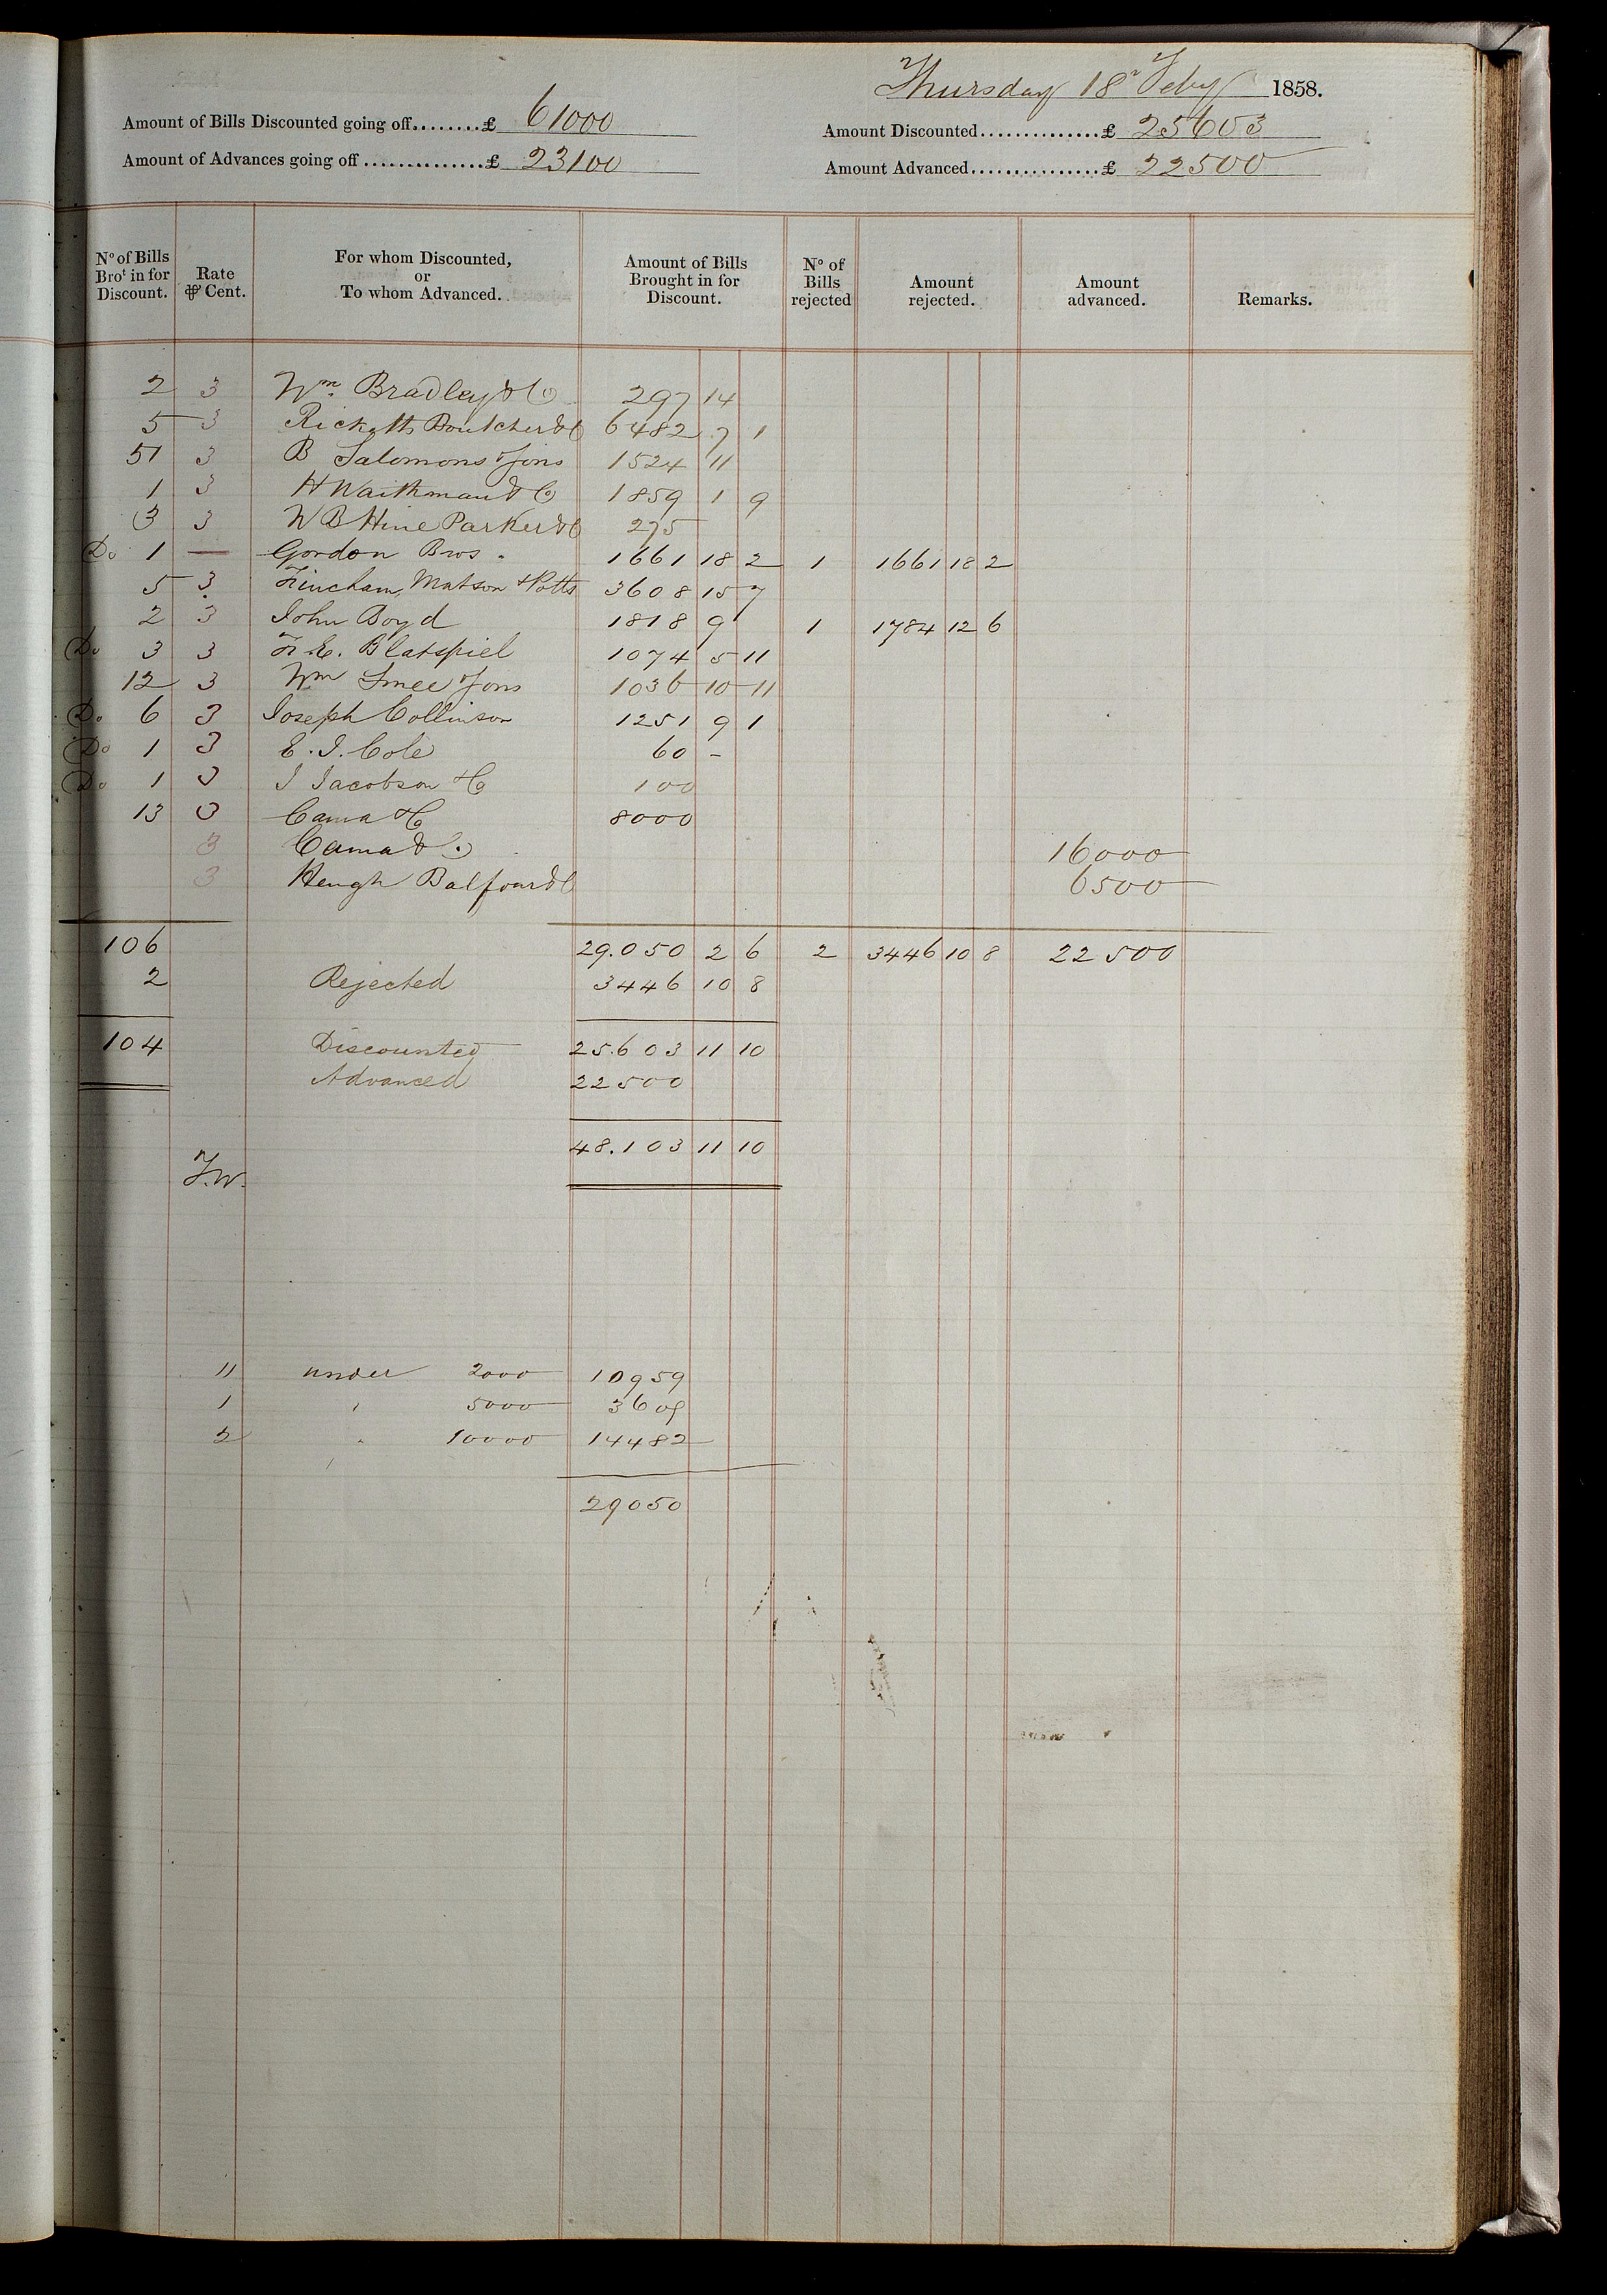 Thursday 18 Feby 1858.
Amount of Bills Discounted going off........£ 61000
Amount Discounted..............£ 25603
Amount of Advances going off..............£ 23100
Amount Advanced................£ 22500
No of Bills Brot in for Discount. Rate ⅌ Cent. For whom Discounted, or To whom Advanced. Amount of Bills Brought in for Discount. No of Bills rejected Amount rejected. Amount advanced. Remarks.
2 3 Wm. Bradley & Co 297 14
5 3 Ricketts Boutcher & Co 6482 7 1
51 3 B Salomons & Sons 1524 11
1 3 H Waithman & Co 1859 1 9
3 3 W B Hine Parker & Co 275
Do 1 — Gordon Bros. 1661 18 2 1 1661 18 2
5 3 Fincham, Matson & Potts 3608 15 7
2 3 John Boyd 1818 9 1 1784 12 6
Do 3 3 F. E. Blatspiel 1074 5 11
12 3 Wm Smee & Sons 1036 10 11
Do 6 3 Joseph Collinson 1251 9 1
Do 1 3 E. J. Cole 60 -
Do 1 3 J Jacobson & Co 100
13 3 Cama & Co 8000
3 Cama & Co 16000
3 Heugh Balfour & Co 6500
106 29.050 2 6 2 3446 10 8 22500
2 Rejected 3446 10 8
104 Discounted 25.603 11 10
Advanced 22500
48.103 11 10
F.W.
11 under 2000 10959
1 " 5000 3609
2 " 10000 14482
29050